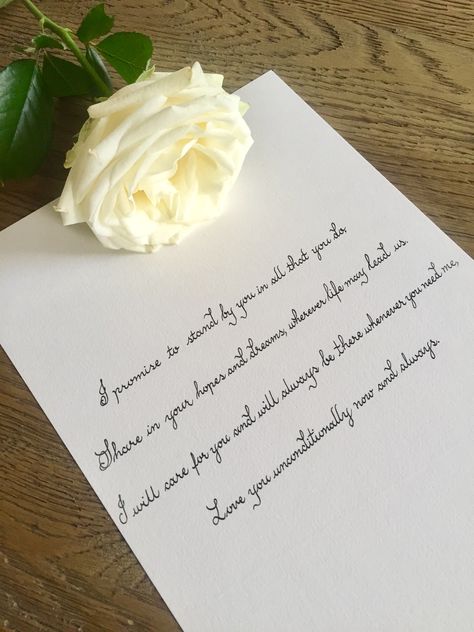 I promise to stand by you in all that you do,
Share in your hopes and dreams, wherever life may lead us.
I will care for you and will always be there whenever you need me,
Love you unconditionally now and always.